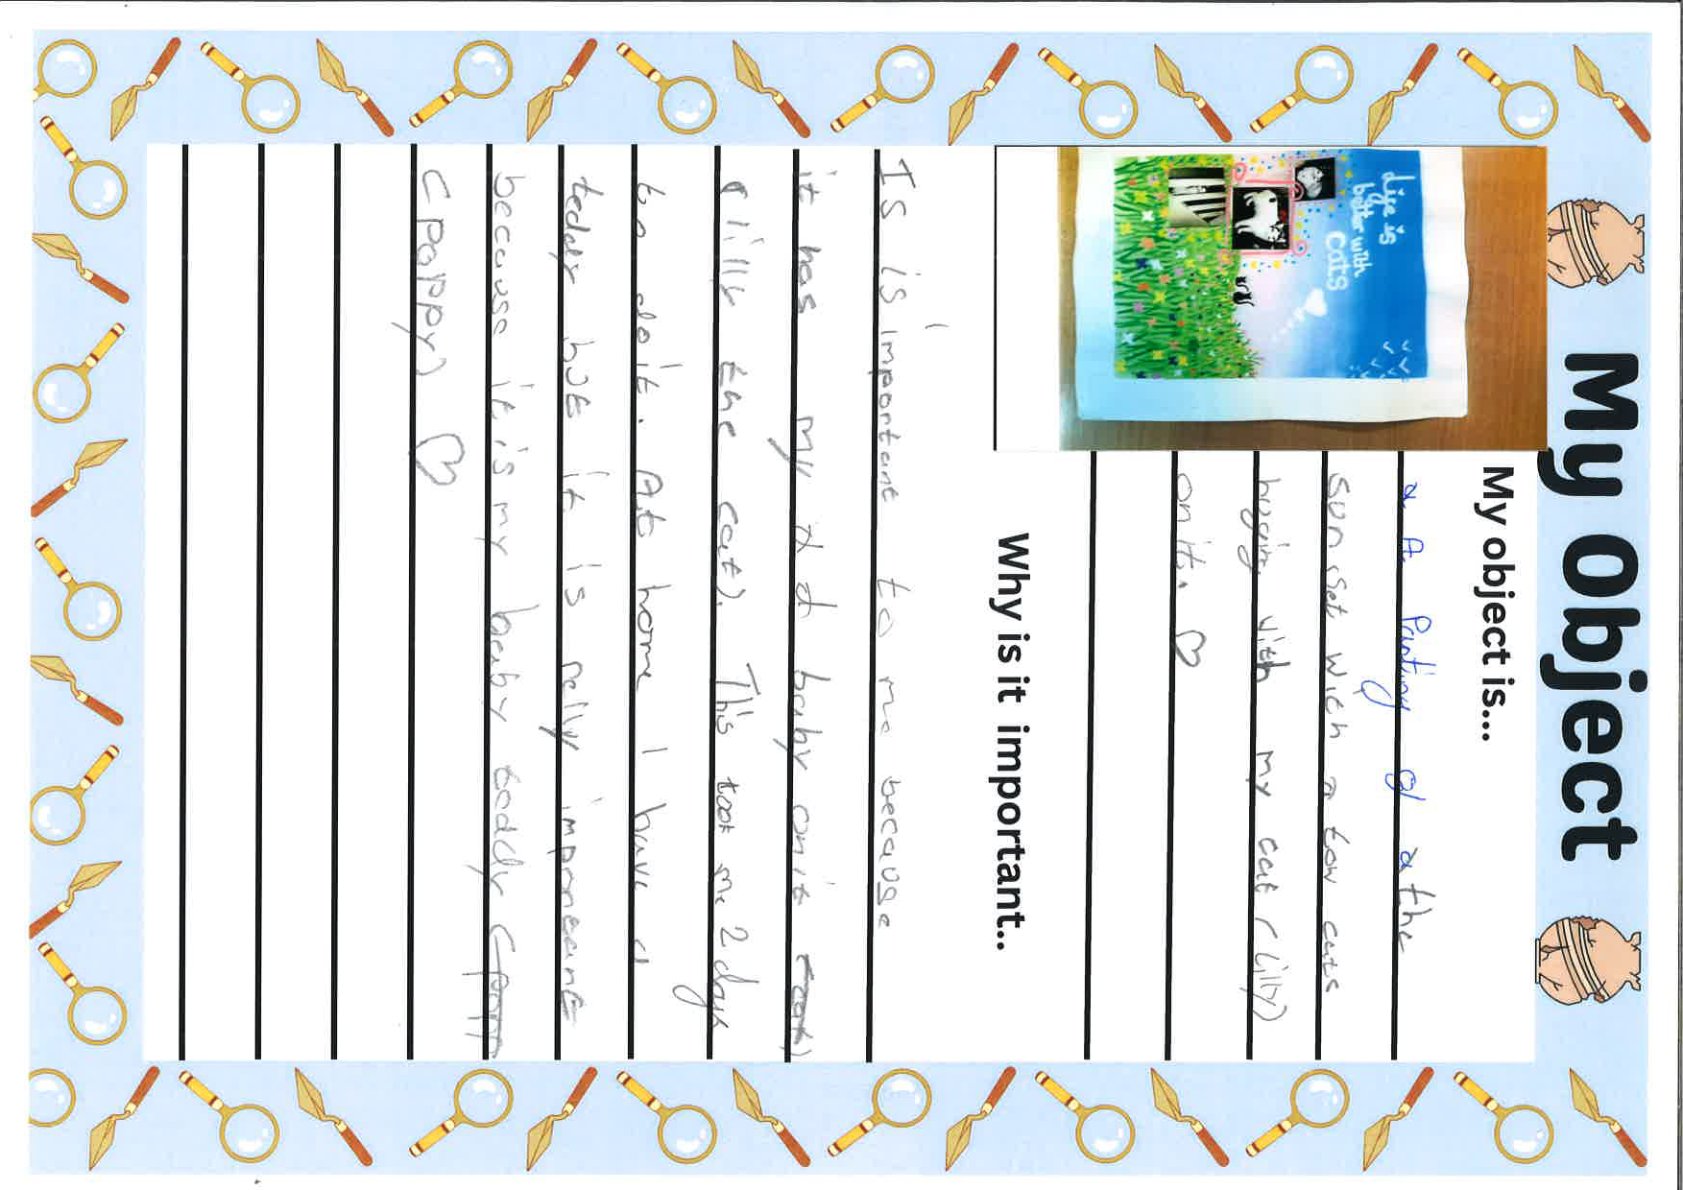 My Object
Life is
better with
cats
My object is...
A Panting of the
sun set with a tow cats
huging with my cat (Lilly)
on it. ♡
Why is it important..
Is is important to me because
it has my baby on it (cat)
(lilly the cat). This took me 2 days
to do it. At home I have a
teddy but it is relly important
because it is my baby teddy (popp
(poppy) ♡